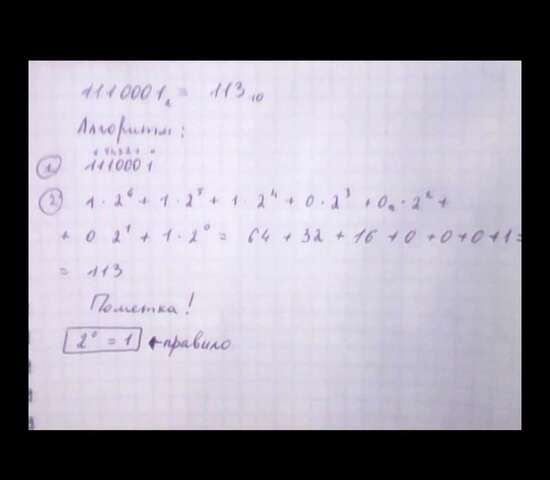 1110001₂ = 113₁₀
Алгоритм:
① 6 5 4 3 2 1 0
1110001
② 1 · 2⁶ + 1 · 2⁵ + 1 · 2⁴ + 0 · 2³ + 0 · 2² +
+ 0 · 2¹ + 1 · 2⁰ = 64 + 32 + 16 + 0 + 0 + 0 + 1 =
= 113
Пометка!
2⁰ = 1 ← правило